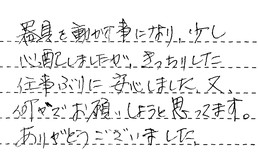 器具を動かす事になり、少し
心配しましたが、きっちりした
仕事ぶりに安心しました。又、
何かでお願いしようと思ってます。
ありがとうございました